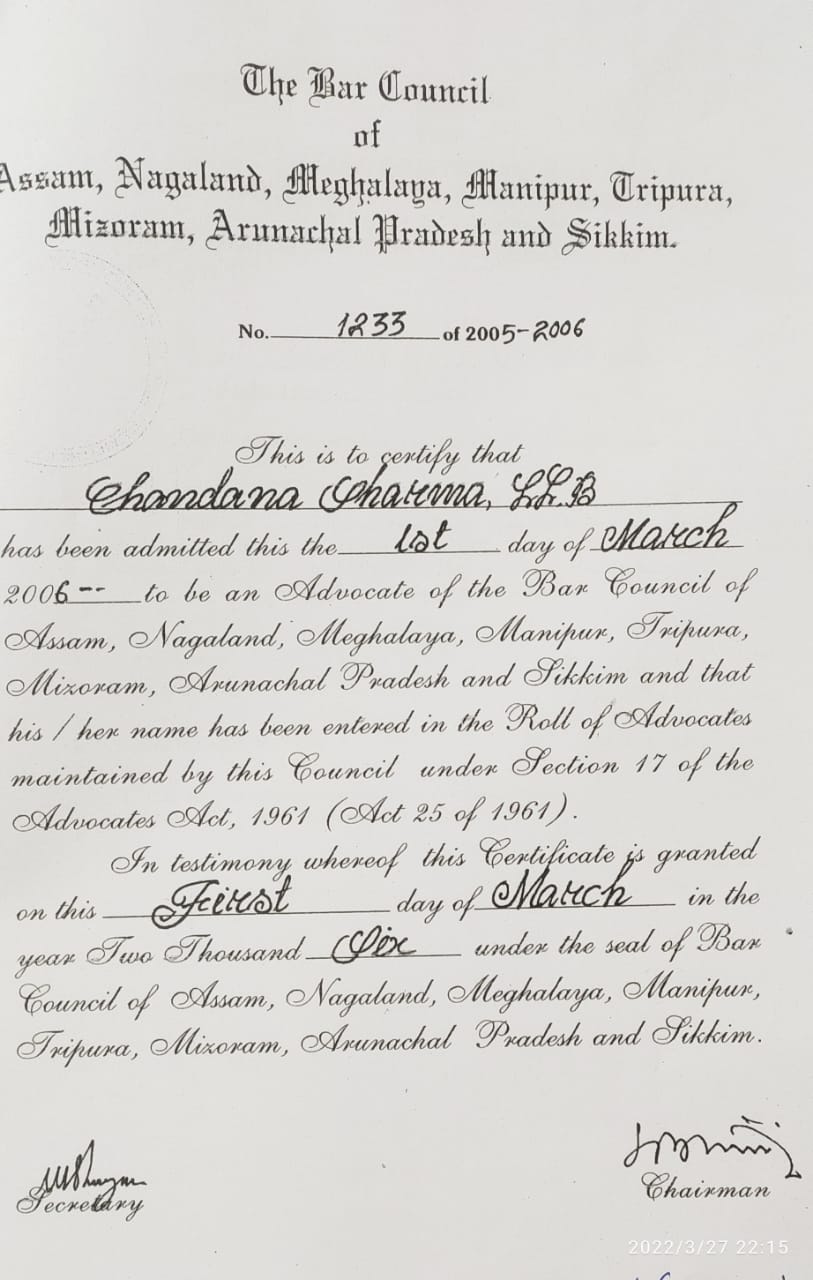 The Bar Council
of
Assam, Nagaland, Meghalaya, Manipur, Tripura,
Mizoram, Arunachal Pradesh and Sikkim.
No. 1233 of 2005-2006
This is to certify that
Chandana Sharma, LL.B
has been admitted this the 1st day of March
2006-- to be an Advocate of the Bar Council of
Assam, Nagaland, Meghalaya, Manipur, Tripura,
Mizoram, Arunachal Pradesh and Sikkim and that
his / her name has been entered in the Roll of Advocates
maintained by this Council under Section 17 of the
Advocates Act, 1961 (Act 25 of 1961).
In testimony whereof this Certificate is granted
on this First day of March in the
year Two Thousand Six under the seal of Bar
Council of Assam, Nagaland, Meghalaya, Manipur,
Tripura, Mizoram, Arunachal Pradesh and Sikkim.
Secretary
Chairman
2022/3/27 22:15